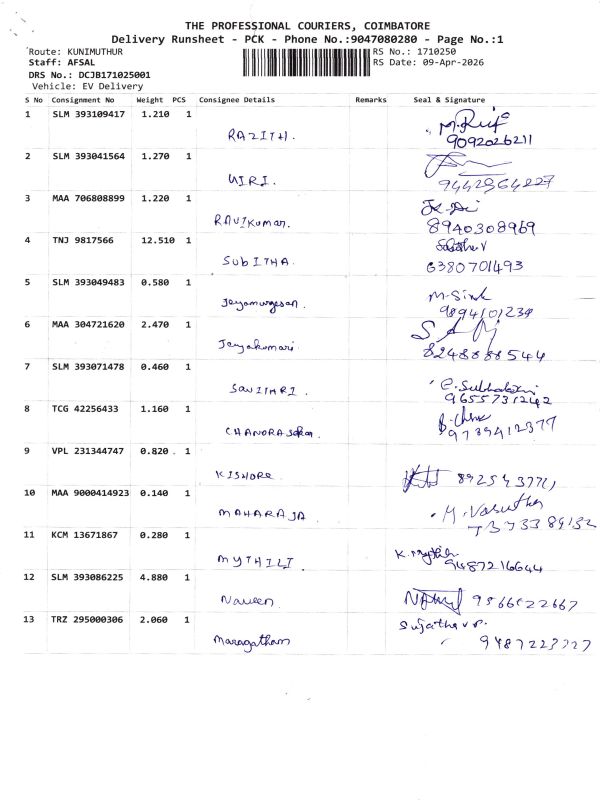 THE PROFESSIONAL COURIERS, COIMBATORE
Delivery Runsheet - PCK - Phone No.:9047080280 - Page No.:1
Route: KUNIMUTHUR RS No.: 1710250
Staff: AFSAL RS Date: 09-Apr-2026
DRS No.: DCJB171025001
Vehicle: EV Delivery
S No Consignment No Weight PCS Consignee Details Remarks Seal & Signature
1 SLM 393109417 1.210 1
RAZITH. 9092026211
2 SLM 393041564 1.270 1
UIRI.
3 MAA 706808899 1.220 1
RAVIKumar. 8940308969
4 TNJ 9817566 12.510 1
SUBITHA. 6380701493
5 SLM 393049483 0.580 1 M-Sink
Jeyamurgesan. 9894101234
6 MAA 304721620 2.470 1
Jeyakumari 8248888544
7 SLM 393071478 0.460 1
SAVITHRI. 9655731242
8 TCG 42256433 1.160 1
CHANDRASekar. 9739412377
9 VPL 231344747 0.820 1
KISHORE
10 MAA 9000414923 0.140 1 M. Vasutha
MAHARAJA
11 KCM 13671867 0.280 1
MYTHILI 9487216644
12 SLM 393086225 4.880 1
Naveen. 9566522667
13 TRZ 295000306 2.060 1
Maragatham